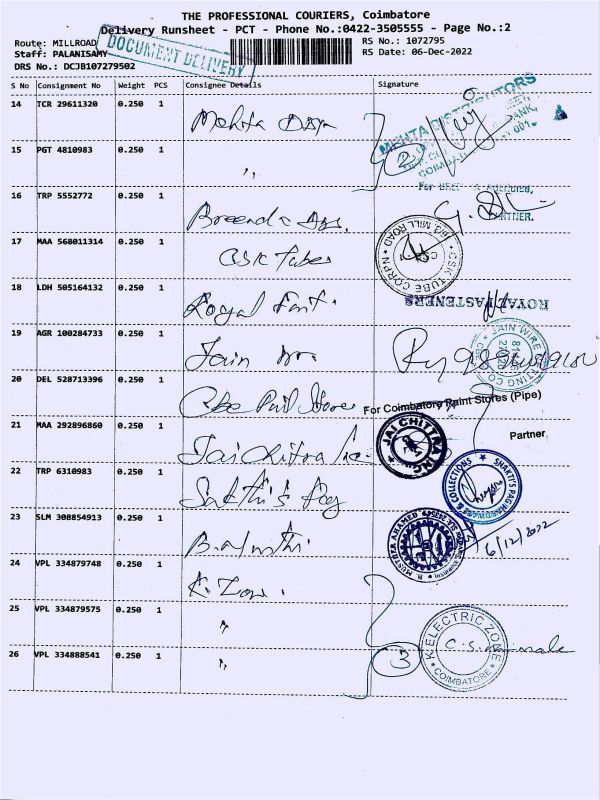 THE PROFESSIONAL COURIERS, Coimbatore
Delivery Runsheet - PCT - Phone No.:0422-3505555 - Page No.:2
Route: MILLROAD
RS No.: 1072795
Staff: PALANISAMY
RS Date: 06-Dec-2022
DRS No.: DCJB107279502
DOCUMENT DELIVERY
S No Consignment No Weight PCS Consignee Details Signature
14 TCR 29611320 0.250 1 Mehta
MEHTA DISTRIBUTORS
15 PGT 4810983 0.250 1 ,, 2
16 TRP 5552772 0.250 1
PARTNER.
17 MAA 568011314 0.250 1 CSK Tube
CSK TUBE CORPN 163, MILL ROAD
18 LDH 505164132 0.250 1 Royal Fast.
ROYAL FASTENERS
19 AGR 100284733 0.250 1 Jain
JAIN WIRE NETTING CO
20 DEL 528713396 0.250 1 Cbe Paint Store
For Coimbatore Paint Stores (Pipe)
21 MAA 292896860 0.250 1 Jai Chitra Inc.
JAI CHITRA INC
Partner
22 TRP 6310983 0.250 1 Sakthi's
SHAKTI'S
& COLLECTIONS
23 SLM 308854913 0.250 1
6/12/2022
24 VPL 334879748 0.250 1 K. Zone.
25 VPL 334879575 0.250 1 ,,
26 VPL 334888541 0.250 1 ,, 3
K ELECTRIC ZONE
COIMBATORE